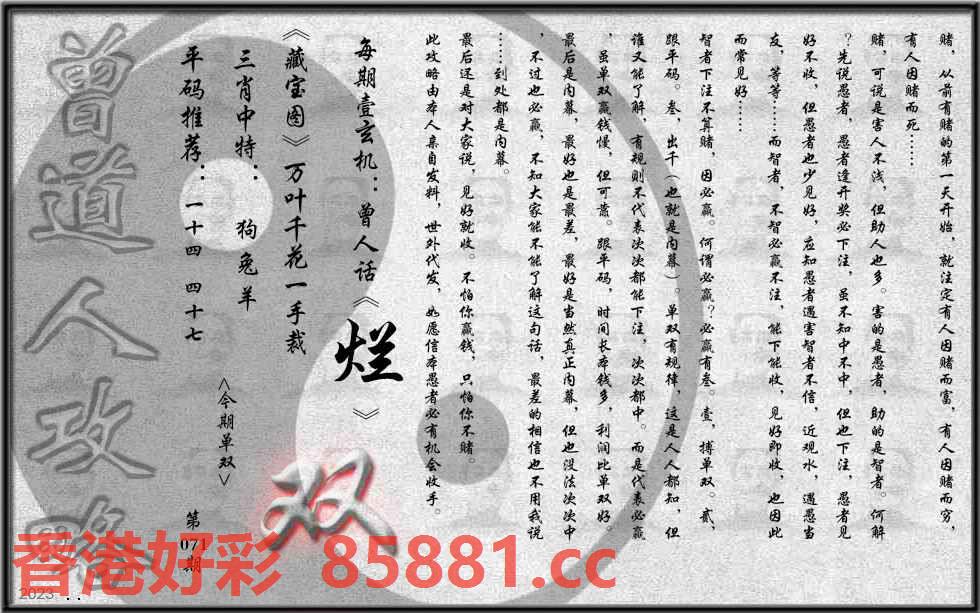 赌，从前有赌的第一天开始，就注定有人因赌而富，有人因赌而穷，
有人因赌而死……
赌，可说是害人不浅，但助人也多。害的是愚者，助的是智者。何解
？先说愚者，愚者逢开奖必下注，虽不知中不中，但也下注，愚者见
好不收，但愚者也少见好，应知愚者遇害智者不信，近观水，遇愚当
友，等等……而智者，不智必赢不注，能下能收，见好即收，也因此
而常见好……
智者下注不算赌，因必赢。何谓必赢？必赢有叁。壹，搏单双。贰，
跟平码。叁，出千（也就是内幕）。单双有规律，这是人人都知，但
谁又能了解，有规则不代表次次都能下注，次次都中。而是代表必赢
，虽单双赢钱慢，但可靠。跟平码，时间长本钱多，利润比单双好。
最后是内幕，最好也是最差，最好是当然真正内幕，但也没法次次中
，不过也必赢，不知大家能不能了解这句话，最差的相信也不用我说
……到处都是内幕。
最后还是对大家说，见好就收。不怕你赢钱，只怕你不赌。
此攻略由本人亲自发料，世外代发，如愿信本愚者必有机会收手。
每期壹玄机：曾人话《烂》
《藏宝图》万叶千花一手裁
三肖中特：狗兔羊
平码推荐：一十四 四十七
<今期单双>
双
第071期
曾道人攻略
香港好彩 85881.cc
2023